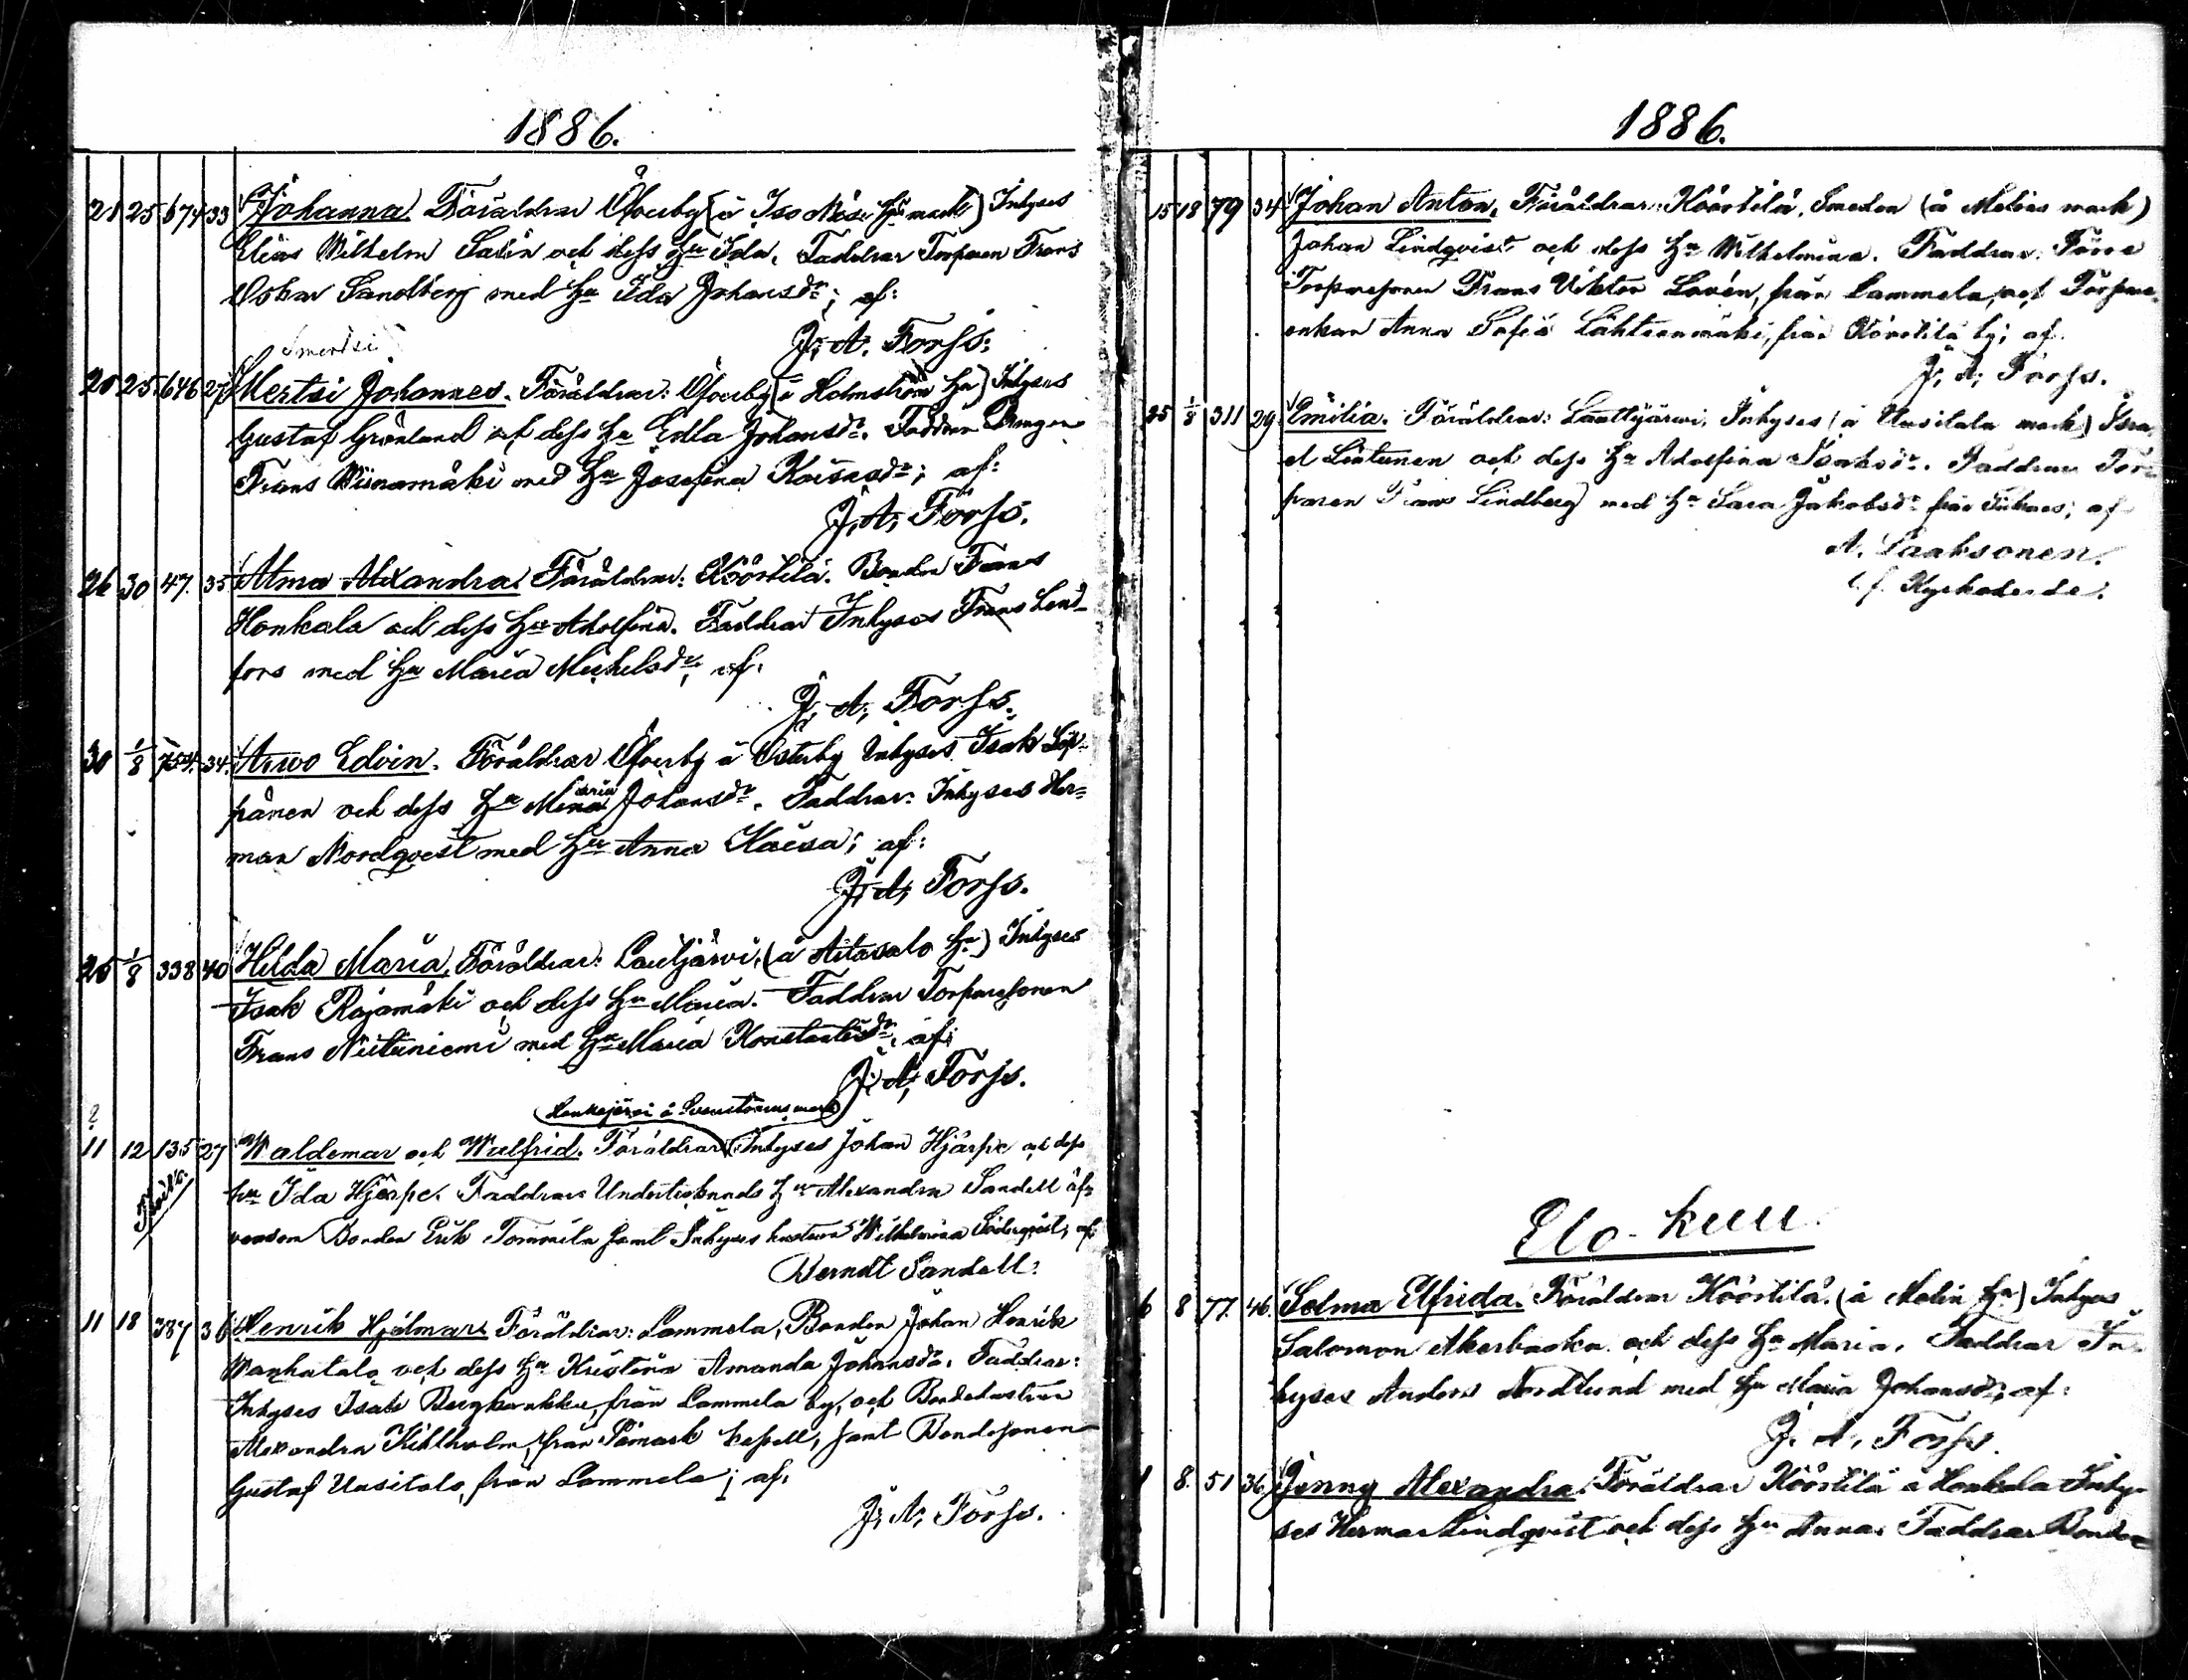 1886.
21 25 674 33 Johanna. Föräldrar Öfverby (å Iso Näsi hns mark) Inhyses
Elias Wilhelm Salin och dess Hu Ida. Faddrar Torparen Frans
Oskar Sandberg med Hu Ida Johansdr; af:
J. A. Forss.
Smertsi
20 25 646 27 Mertsi Johannes. Föräldrar: Öfverby (å Holmström hn) Inhyses
Gustaf Grönland och dess Hu Edla Johansdr. Faddrar
Frans Wiinamäki med Hu Josefina; af:
J. A. Forss.
26 30 47. 35 Alma Alexandra. Föräldrar: Köörtilä. Bonden Frans
Honkala och dess Hu Adolfina. Faddrar Inhyses Frans Lind-
fors med Hu Maria Michelsdr; af:
J. A. Forss.
30 1/8 754. 34. Arwo Edvin. Föräldrar Öfverby å Österby Inhyses Isak Lep-
pänen och dess Hu Mina aria Johansdr. Faddrar: Inhyses Her-
man Nordqvist med Hu Anna Kaisa; af:
J. A. Forss.
25 1/8 338 40 Hilda Maria. Föräldrar: Lautjärwi, (å Aitasalo hn) Inhyses
Isak Rajamäki och dess Hu Maria. Faddrar Torparesonen
Frans Niituniemi med Hu Maria Konstantsdr, af:
J. A. Forss.
?
11 12 135 27 Waldemar och Walfrid. Föräldrar Inhyses Johan Hjärpe och dess
Hu Ida Hjärpe. Faddrar Hu Alexandra Sandell äf-
vensom Bonden Erik Tommila samt Inhyses hustrun Wilhelmina Söderqvist; af
Berndt Sandell.
11 18 387 36 Henrik Hjalmar. Föräldrar: Lammela, Bonden Johan Henrik
Wanhatalo och dess Hu Kristina Amanda Johansdr. Faddrar:
Inhyses Isak från Lammela by, och Bondedottren
Alexandra Kihlholm, från Påmark kapell, samt Bondesonen
Gustaf Uusitalo, från Lammela; af:
J. A. Forss.
1886.
15 18 79 34 Johan Anton. Föräldrar: Köörtilä. Smeden (å Melins mark)
Johan Lindqvist och dess Hu Wilhelmina. Faddrar:
Torparesonen Frans Viktor Lovén, från Lammela, och Torpare-
enkan Anna Sofia Lähteenmäki, från Köörtilä by; af
J. A. Forss.
25 1/8 311 29 Emilia. Föräldrar: Lauttijärwi, Inhyses (å Uusitalo mark) Isra-
el Lintunen och dess Hu Adolfina Isaksdr. Faddrar Tor-
paren Frans Lindberg med Hu Sara Jakobsdr från; af
A. Laaksonen.
t. f. Kyrkoherde.
Elo-kuu
6 8 77. 46. Selma Elfrida. Föräldrar Köörtilä. (å Melin hn) Inhyses
Salomon Akerbacka och dess Hu Maria. Faddrar In-
hyses Anders Nordlund med Hu Maria Johansdr; af:
J. A. Forss.
1 8. 51 36 Jenny Alexandra. Föräldrar Köörtilä å Honkala Inhy-
ses Herman Lindqvist och dess Hu Anna. Faddrar Bonden